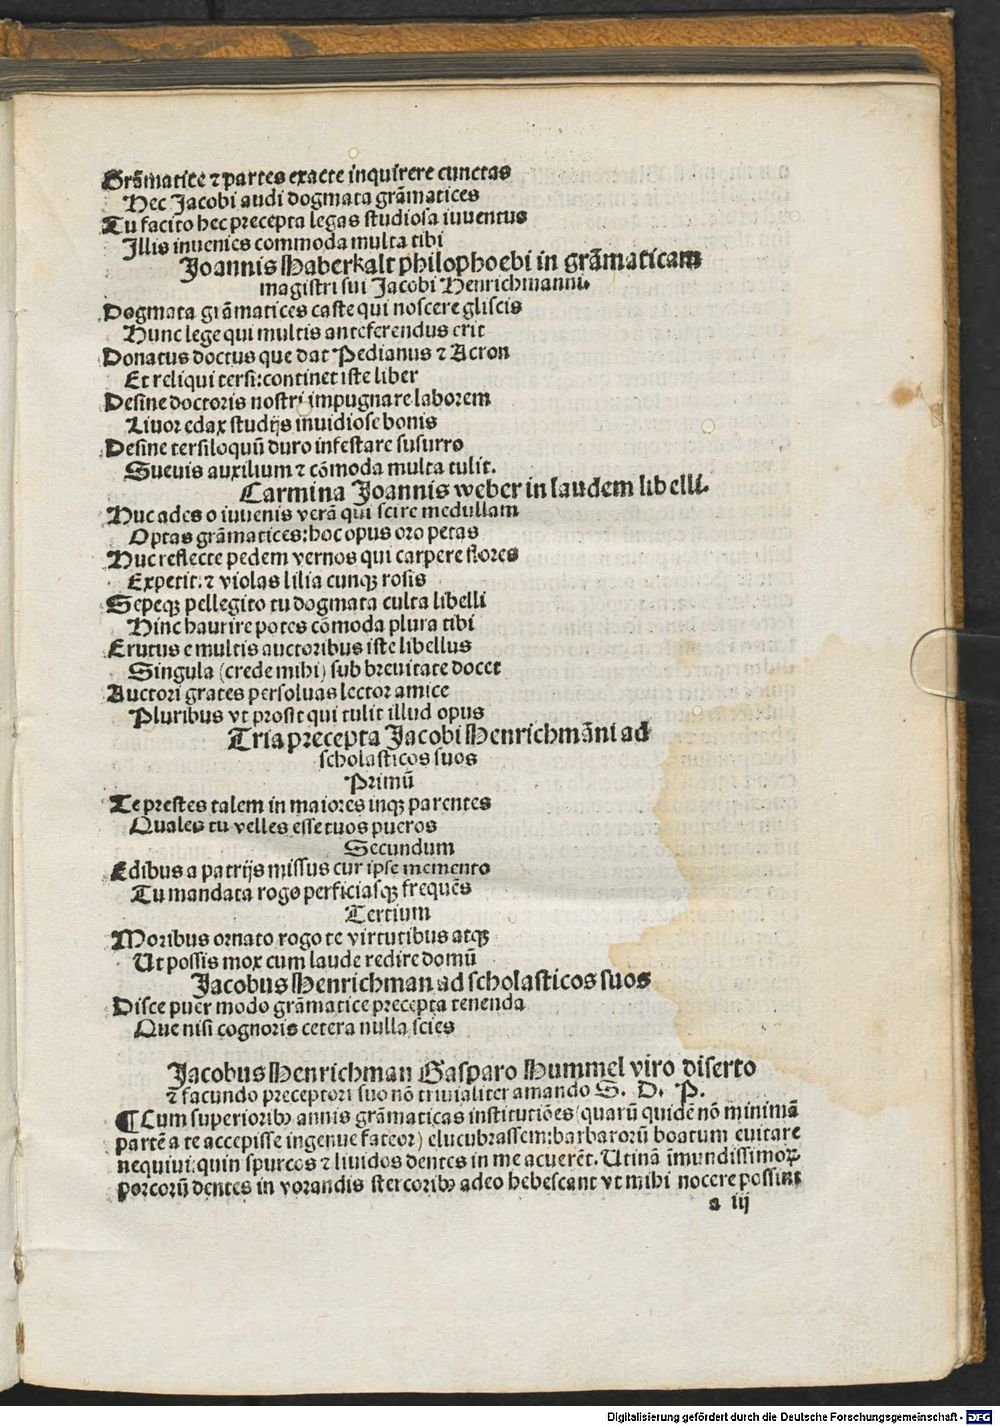 Grãmatice ⁊ partes exacte inquirere cunctas
Hec Jacobi audi dogmata grãmatices
Tu facito hec precepta legas studiosa iuuentus
Illis inuenies commoda multa tibi
Joannis Haberkalt philophoebi in grãmaticam
magistri sui Jacobi Henrichmanni.
Dogmata grãmatices caste qui noscere gliscis
Hunc lege qui multis anteferendus erit
Donatus doctus que dat Pedianus ⁊ Acron
Et reliqui tersi: continet iste liber
Desine doctoris nostri impugnare laborem
Liuor edax studijs inuidiose bonis
Desine tersiloquũ duro infestare susurro
Sueuis auxilium ⁊ cõmoda multa tulit.
Carmina Joannis weber in laudem libelli.
Huc ades o iuuenis verã qui scire medullam
Optas grãmatices: hoc opus oro petas
Huc reflecte pedem vernos qui carpere flores
Expetit: ⁊ violas lilia cunqꝫ rosis
Sepeqꝫ pellegito tu dogmata culta libelli
Hinc haurire potes cõmoda plura tibi
Erutus e multis auctoribus iste libellus
Singula (crede mihi) sub breuitate docet
Auctori grates persoluas lector amice
Pluribus vt prosit qui tulit illud opus
Tria precepta Jacobi Henrichmãni ad
scholasticos suos
Primũ
Te prestes talem in maiores inqꝫ parentes
Quales tu velles esse tuos pueros
Secundum
Edibus a patrijs missus cur ipse memento
Tu mandata rogo perficiasqꝫ frequẽs
Tertium
Moribus ornato rogo te virtutibus atqꝫ
Ut possis mox cum laude redire domũ
Jacobus Henrichman ad scholasticos suos
Disce puer modo grãmatice precepta tenenda
Que nisi cognoris cetera nulla scies
Jacobus Henrichman Gasparo Hummel viro diserto
⁊ facundo preceptori suo nõ triuialiter amando S. D. P.
¶ Cum superioribꝫ annis grãmaticas institutiões (quarũ quidẽ nõ minimã
partẽ a te accepisse ingenue fateor) elucubrassem: barbarorũ boatum euitare
nequiui: quin spurcos ⁊ liuidos dentes in me acuerẽt. Utinã ĩmundissimoꝝ
porcorũ dentes in vorandis stercoribꝫ adeo hebescant vt mihi nocere possint
a iij
Digitalisierung gefördert durch die Deutsche Forschungsgemeinschaft - DFG